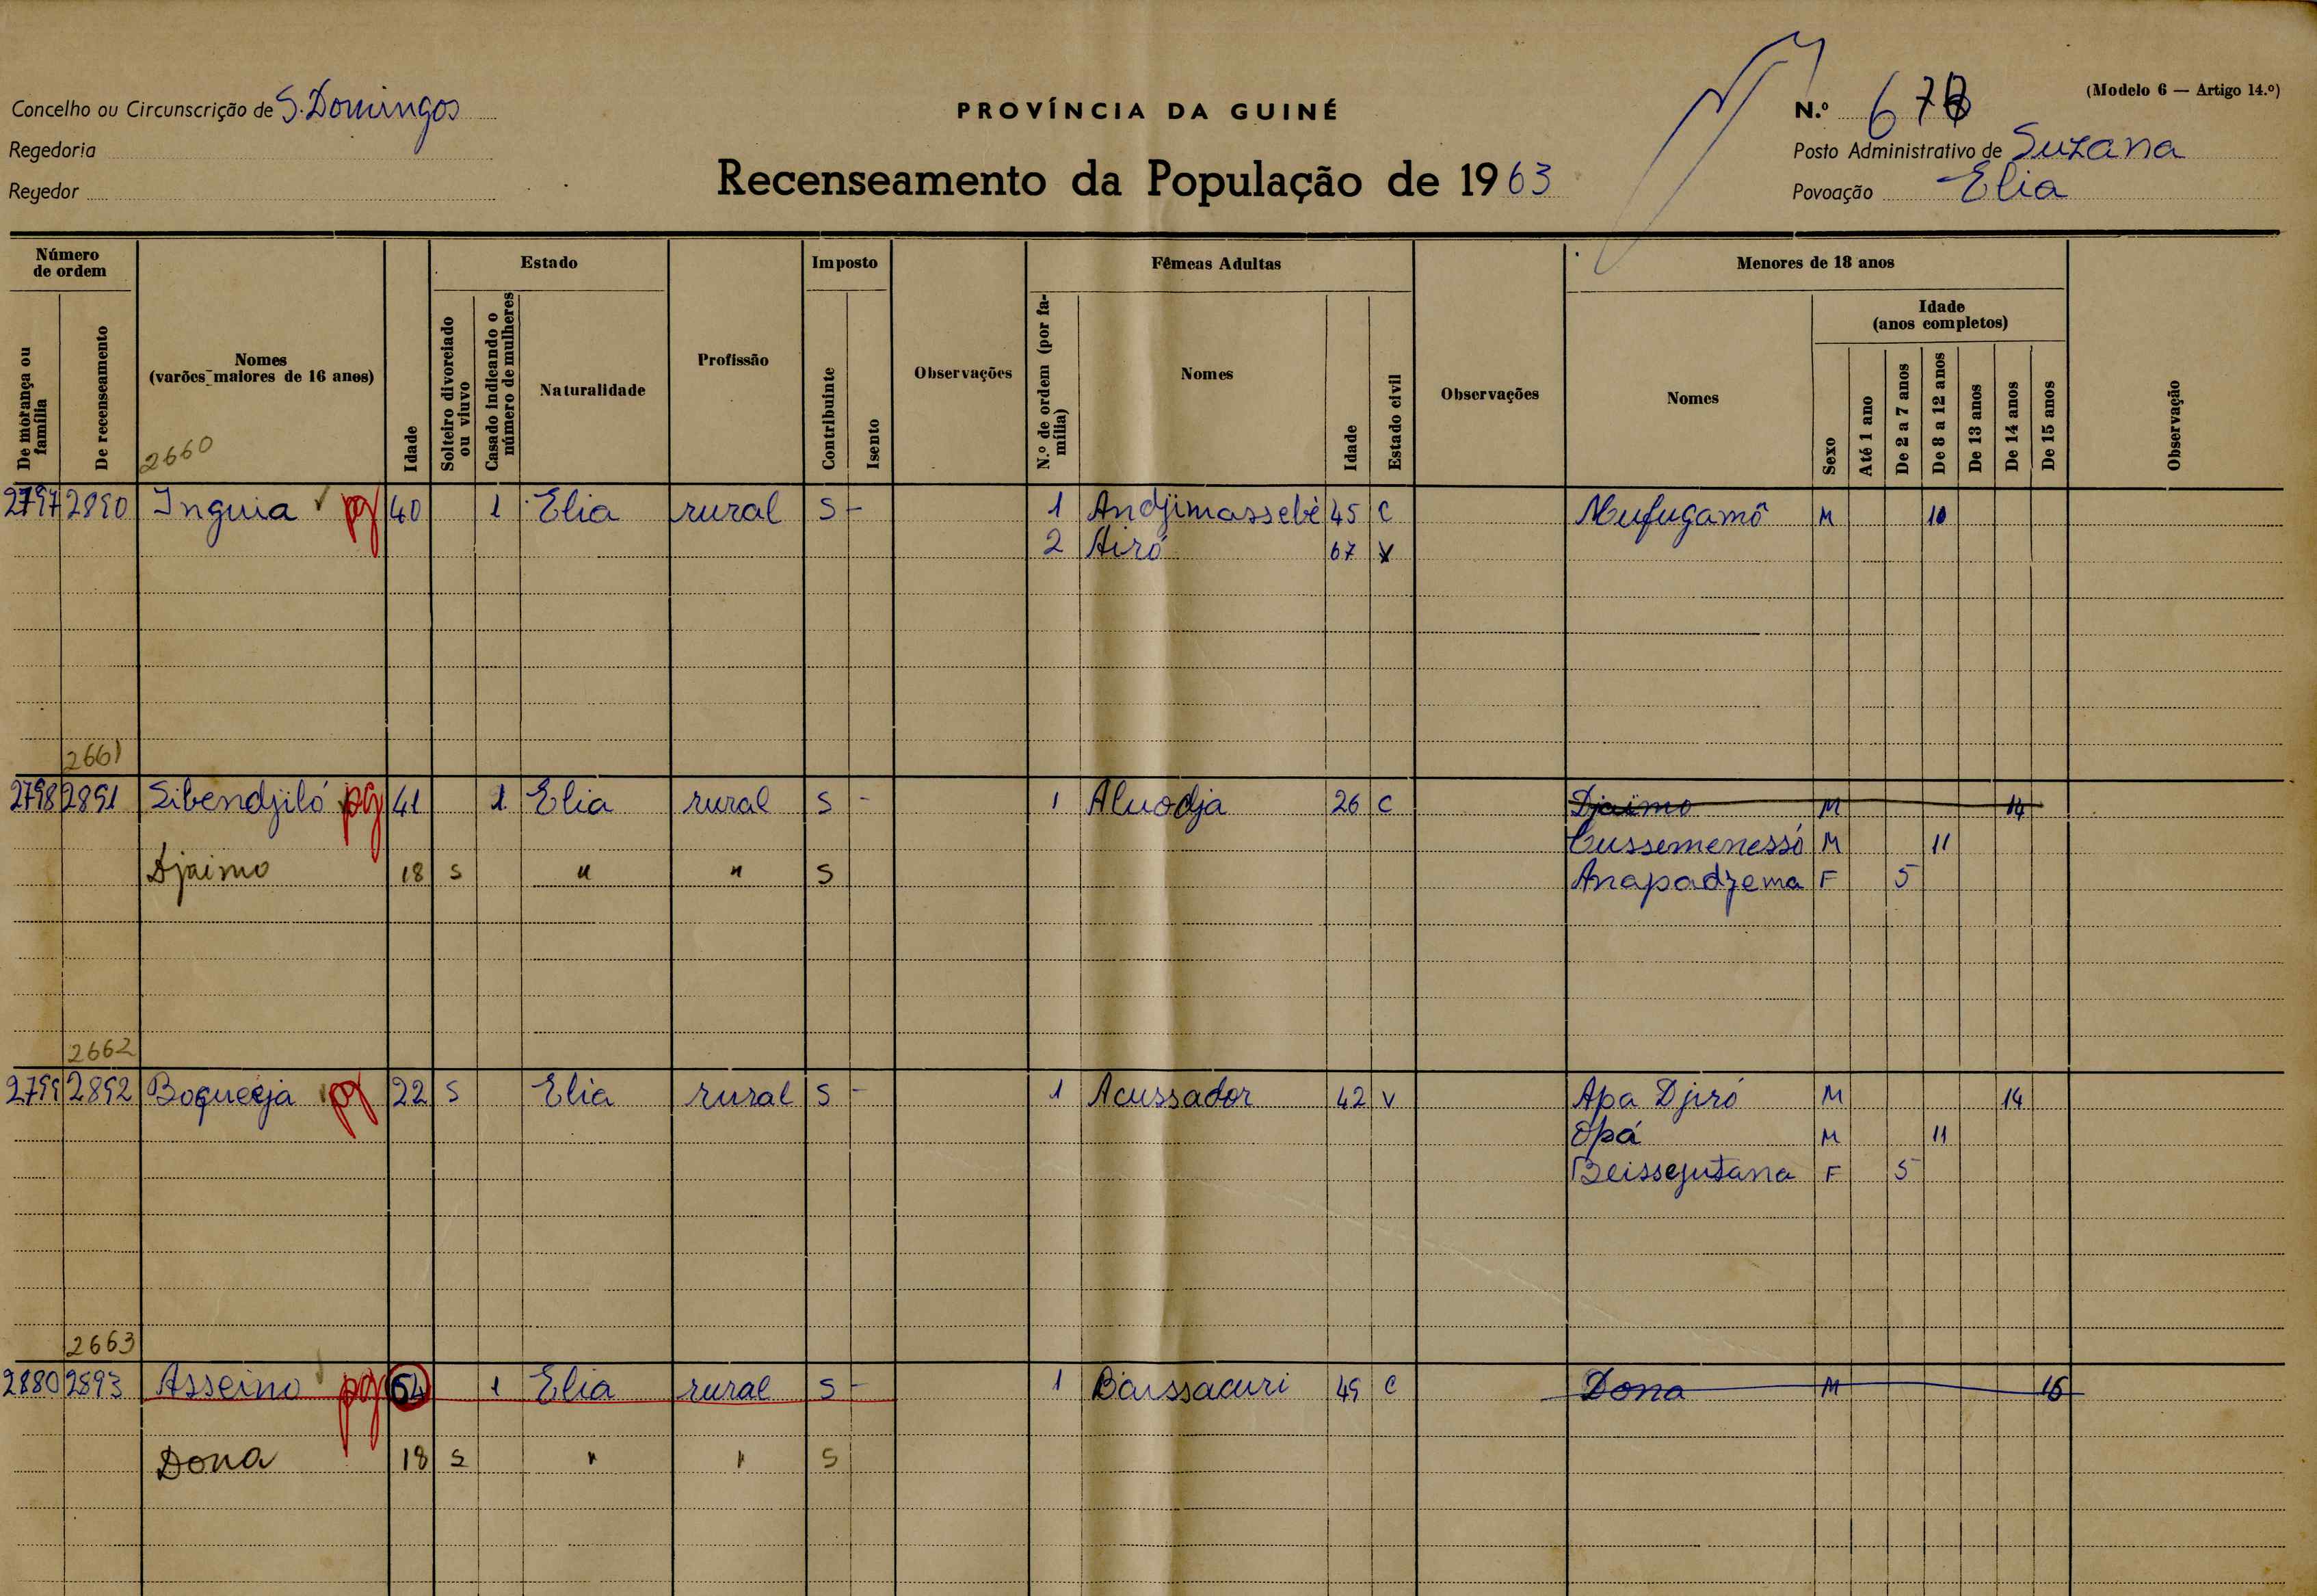 Concelho ou Circunscrição de S. Domingos
PROVÍNCIA DA GUINÉ
N.º
(Modelo 6 — Artigo 14.º)
Regedoria
Posto Administrativo de Suzana
Regedor
Recenseamento da População de 1963
Povoação Elia
Número de ordem
De morança ou família
De recenseamento
Nomes
(varões maiores de 16 anos)
2660
Idade
Estado
Solteiro divorciado ou viuvo
Casado indicando o número de mulheres
Naturalidade
Profissão
Imposto
Contribuinte
Isento
Observações
Fêmeas Adultas
N.º de ordem (por família)
Nomes
Idade
Estado civil
Observações
Menores de 18 anos
Nomes
Sexo
Idade
(anos completos)
Até 1 ano
De 2 a 7 anos
De 8 a 12 anos
De 13 anos
De 14 anos
De 15 anos
Observação
2797 2890 Inguia pg 40 1 Elia rural S - 1 Andjimassebé 45 C Mufugamô M 10
2 Airó 67 V
2661
2798 2891 Sibendjiló pg 41 1 Elia rural S - 1 Aluodja 26 C Djaimo M 14
Cussemenessó M 11
Djaimo 18 S " " S Anapadyema F 5
2662
2799 2892 Boqueeja pg 22 S Elia rural S - 1 Acussador 42 V Apa Djiró M 14
Opá M 11
Beissejutana F 5
2663
2880 2893 Asseino pg 1 Elia rural S - 1 Baissacuri 49 C Dona M
Dona 18 S " " S